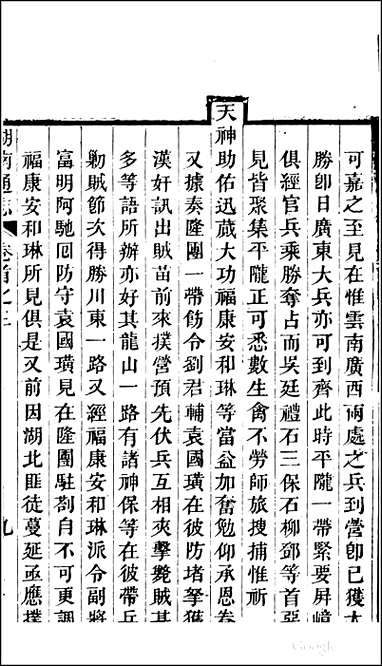 可嘉之至見在惟雲南廣西兩處之兵到營卽已獲大
勝卽日廣東大兵亦可到齊此時平隴一帶緊要屛嶂
俱經官兵乘勝奪占而吳廷禮石三保石柳鄧等首惡
見皆聚集平隴正可悉數生禽不勞師旅搜捕惟祈
天神助佑迅蕆大功福康安和琳等當益加奮勉仰承恩眷
又據奏隆團一帶飭令劉君輔袁國璜在彼防堵拏獲
漢奸訊出賊苗前來撲營預先伏兵互相夾擊斃賊甚
多等語所辦亦好其龍山一路有諸神保等在彼帶兵
勦賊節次得勝川東一路又經福康安和琳派令副將
富明阿馳囘防守袁國璜見在隆團駐劄自不可更調
福康安和琳所見俱是又前因湖北匪徒蔓延亟應撲
湖南通志 卷首之三 九
Google